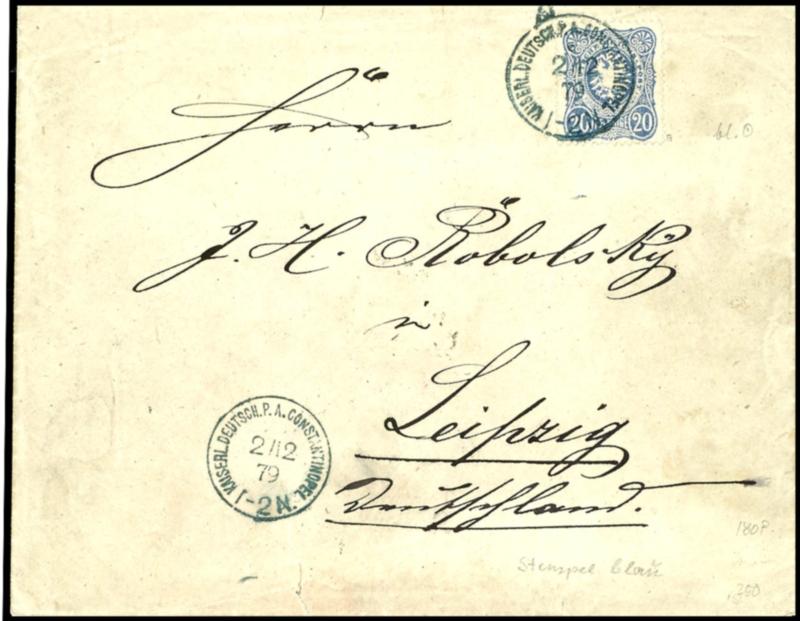 KAISERL. DEUTSCH. P. A. CONSTANTINOPEL
2/12
79
20 20
bl. ⊙
Herrn
J. H. Röbolsky
in
Leipzig
Deutschland.
KAISERL. DEUTSCH. P. A. CONSTANTINOPEL
2/12
79
1-2 N.
180P.
Stempel blau